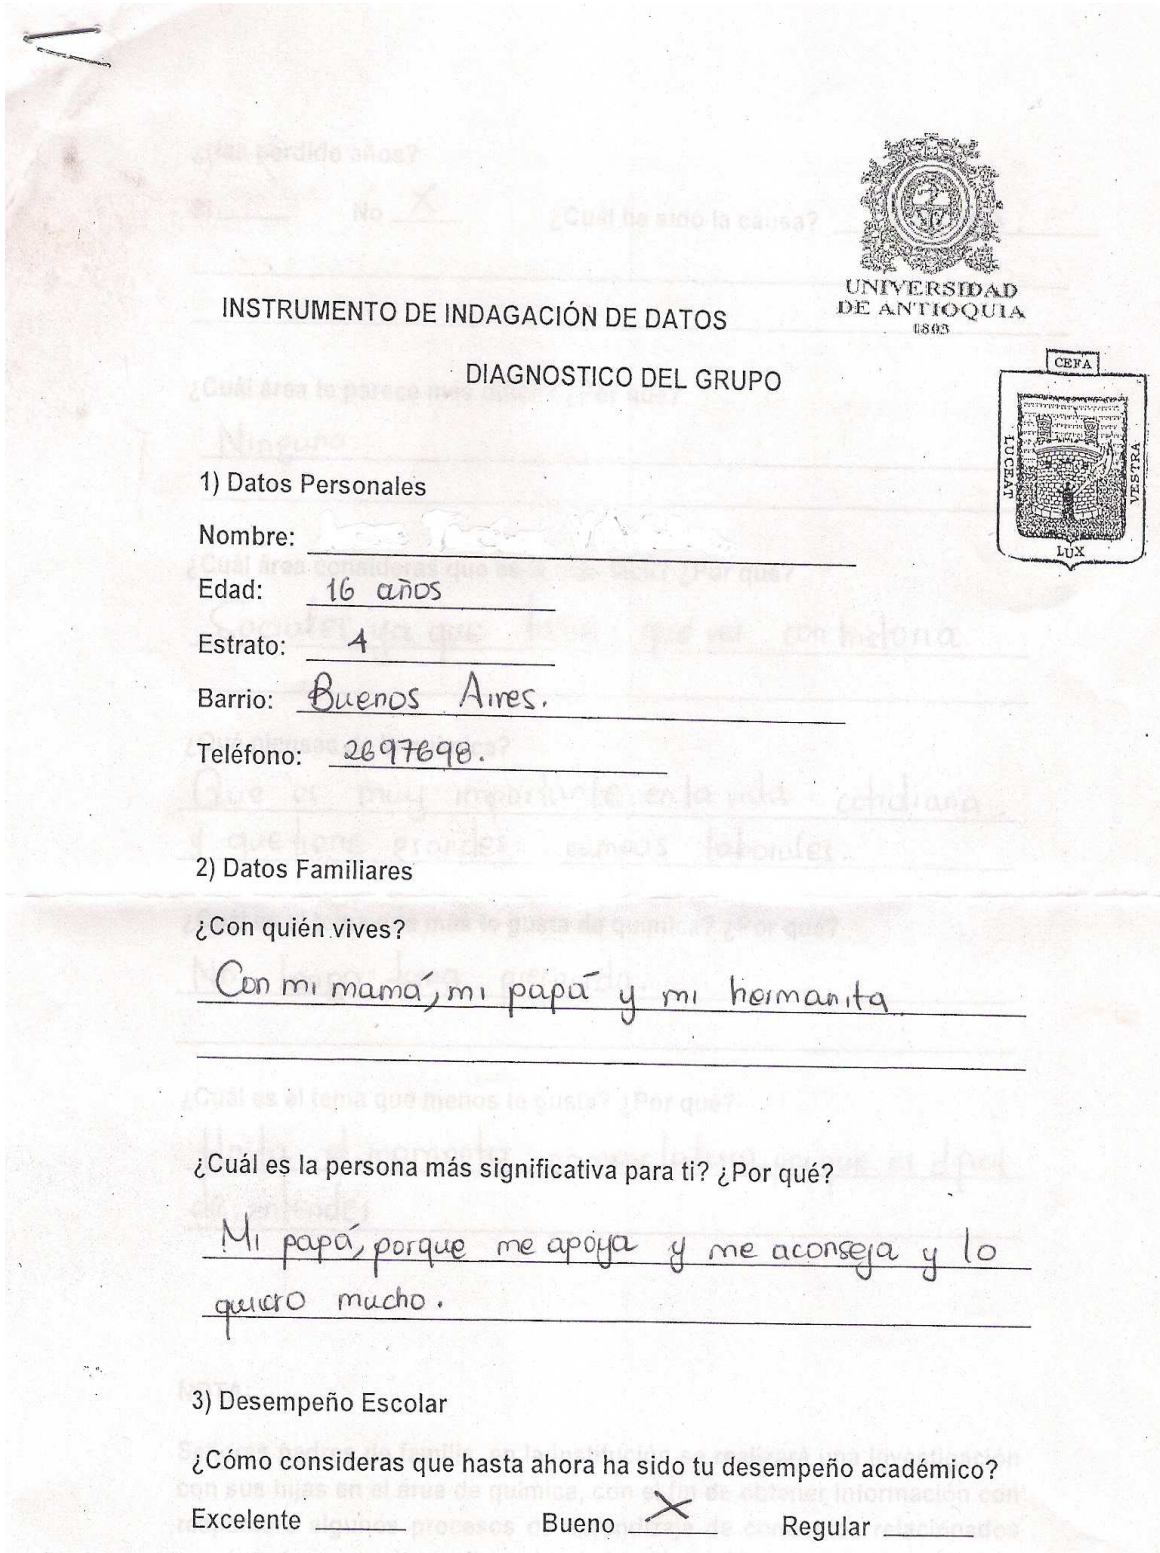 UNIVERSIDAD
DE ANTIOQUIA
1803
INSTRUMENTO DE INDAGACIÓN DE DATOS
DIAGNOSTICO DEL GRUPO
CEFA
LUCEAT
VESTRA
LUX
1) Datos Personales
Nombre:
Edad: 16 años
Estrato: 1
Barrio: Buenos Aires.
Teléfono: 2697698.
2) Datos Familiares
¿Con quién vives?
Con mi mamá, mi papá y mi hermanita
¿Cuál es la persona más significativa para ti? ¿Por qué?
Mi papá, porque me apoya y me aconseja y lo
quiero mucho.
3) Desempeño Escolar
¿Cómo consideras que hasta ahora ha sido tu desempeño académico?
Excelente Bueno X Regular